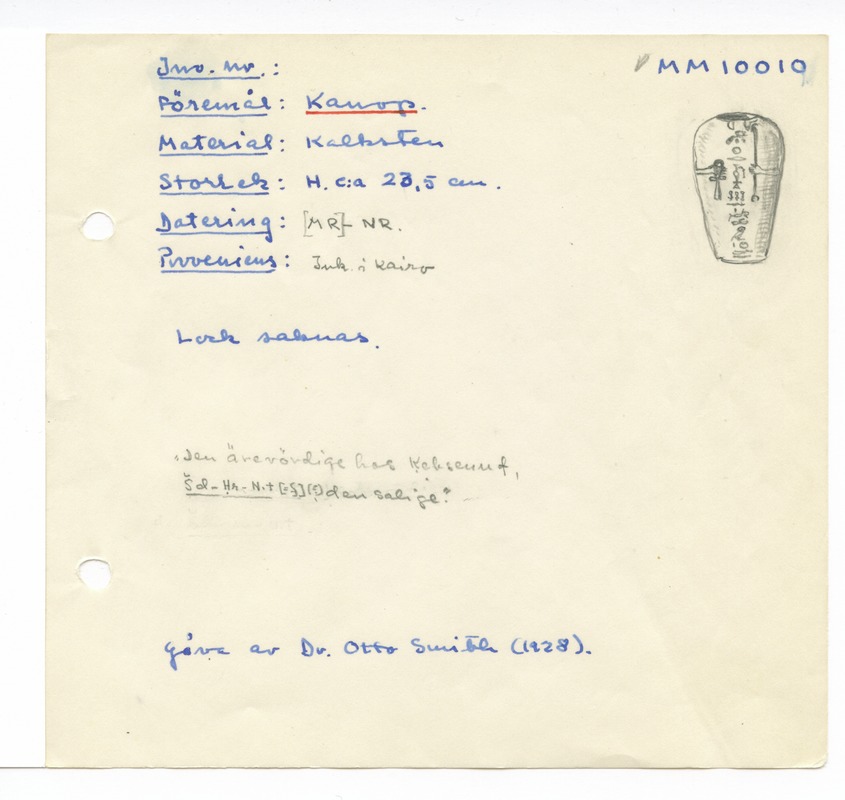 Inv. nr.: MM10010
Föremål: Kanop.
Material: Kalksten
Storlek: H. c:a 23,5 cm.
Datering: [MR]- NR.
Proveniens: Ink. i Kairo
Lock saknas.
"Den ärevördige hos Kebsenuf,
Šd-Ḥr-N.t den salige."
Gåva av Dr. Otto Smith (1928).